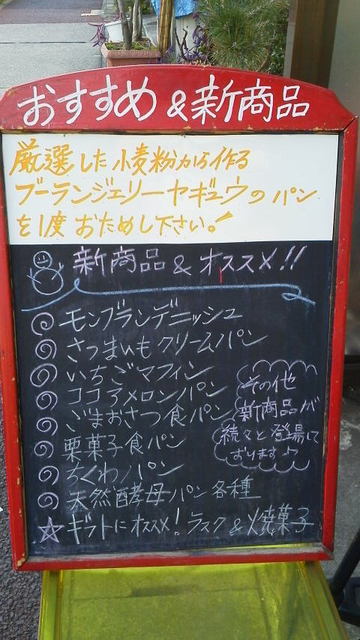 おすすめ&新商品
厳選した小麦粉から作る
ブーランジェリーヤギュウのパン
を1度おためし下さい。
新商品&オススメ!!
モンブランデニッシュ
さつまいもクリームパン
いちごマフィン
ココアメロンパン
ごまおさつ食パン
栗菓子食パン
ちくわパン
天然酵母パン各種
☆ギフトにオススメ!ラスク&焼菓子
その他
新商品が
続々と登場して
おります♪